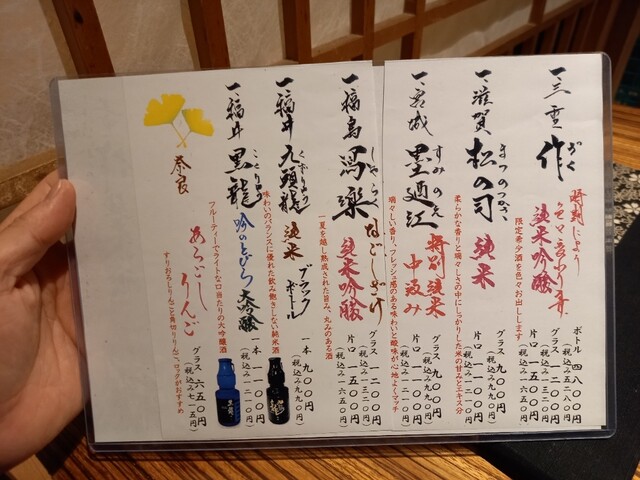 一、三重 作 ざく
時期により
純米吟醸
限定希少酒を色々お出しします
ボトル 四八〇〇円
(税込み五二八〇円)
グラス 一二〇〇円
(税込み一三二〇円)
片口 一五〇〇円
(税込み一六五〇円)
一、滋賀 松の司 まつのつかさ
純米
柔らかな香りと瑞々しさの中にしっかりした米の甘みとエキス分
グラス 九〇〇円
(税込み九九〇円)
片口 一一〇〇円
(税込み一二一〇円)
一、宮城 墨廼江 すみのえ
特別純米
中汲み
瑞々しい香り、フレッシュ感のある味わいと酸味が心地よくマッチ
グラス 九〇〇円
(税込み九九〇円)
片口 一一〇〇円
(税込み一二一〇円)
一、福島 寫楽 しゃらく
なごしざけ
純米吟醸
一夏を越し熟成された旨み、丸みのある酒
グラス 一二〇〇円
(税込み一三二〇円)
片口 一五〇〇円
(税込み一六五〇円)
一、福井 九頭龍 くずりゅう
純米
ブラックボトル
味わいのバランスに優れた飲み飽きしない純米酒
一本 九〇〇円
(税込み九九〇円)
一、福井 黒龍 こくりゅう
吟のとびら
大吟醸
フルーティーでライトな口当たりの大吟醸酒
一本 一一〇〇円
(税込み一二一〇円)
奈良
あらごしりんご
すりおろしりんごと角切りりんご、ロックがおすすめ
グラス 六五〇円
(税込み七一五円)